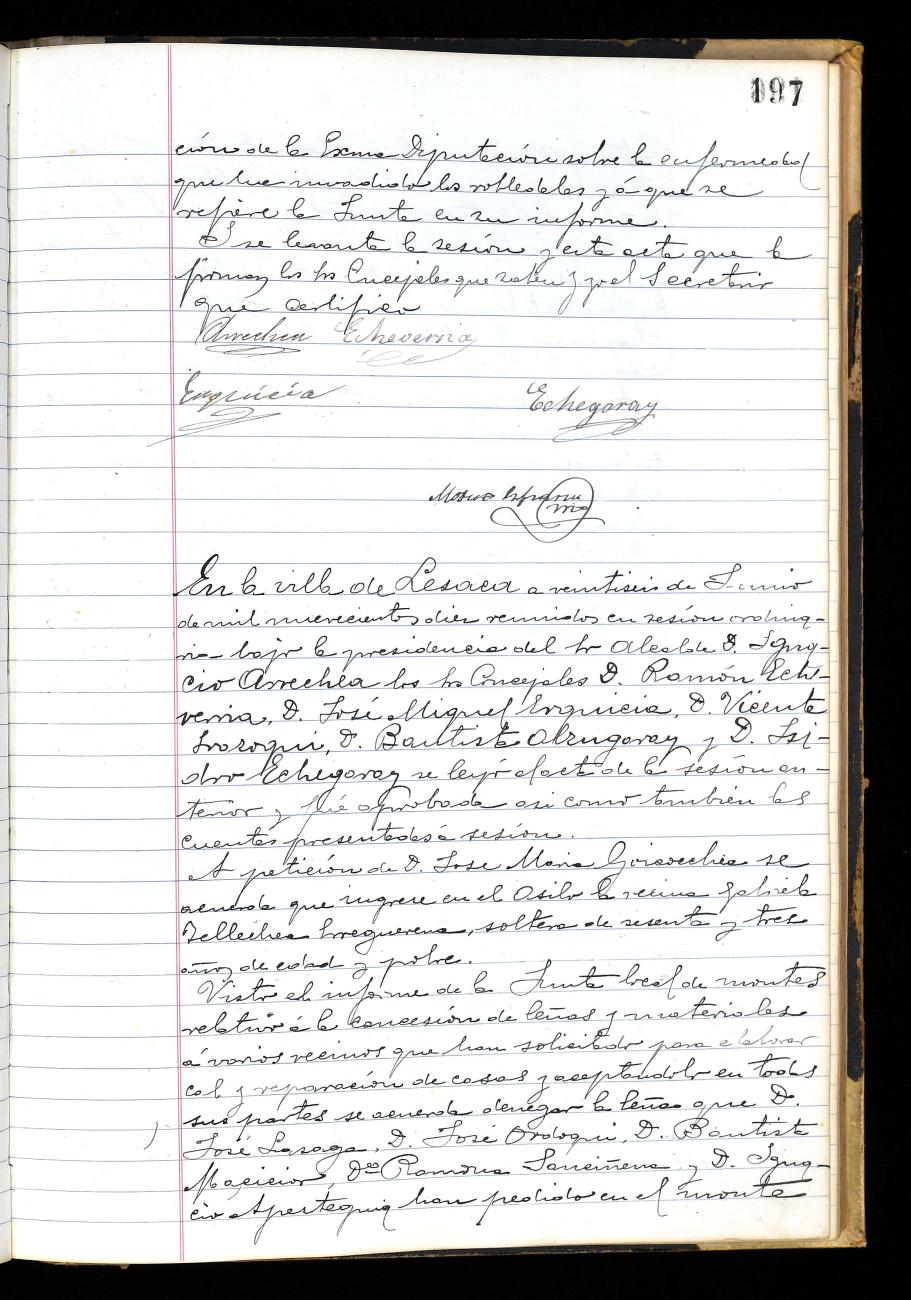 197
ción de la Exma Diputación sobre la enfermedad
que ha invadido los robledales y á que se
refiere la Junta en su informe.
Y se levanta la sesión y esta acta que la
firman los Srs Concejales que saben y yo el Secretario
que certifico
Arrechea Echeverria
Erquicia
Echegaray
Marcos
En la villa de Lesaca a veintiseis de Junio
de mil nuevecientos diez reunidos en sesión ordina-
ria bajo la presidencia del Sr Alcalde D. Igna-
cio Arrechea los Srs Concejales D. Ramón Eche-
verria, D. José Miguel Erquicia, D. Vicente
Irazoqui, D. Bautista Alzugaray y D. Isi-
dro Echegaray se leyó el acta de la sesión an-
terior y fué aprobada asi como también las
cuentas presentadas á sesión.
A petición de D. Jose Maria Goizvechea se
acuerda que ingrese en el Asilo la vecina Gabriela
Tellechea Irreguerena, soltera de sesenta y tres
años de edad y pobre.
Visto el informe de la Junta local de montes
relativo á la concesión de leñas y materiales
á varios vecinos que han solicitado para elaborar
cal y reparación de casas y aceptandolo en todas
sus partes se acuerda denegar la leña que D.
José Lasaga, D. José Ordoqui, D. Bautista
Macicior, Dª Ramona Sanciñena y D. Igna-
cio Apesteguia han pedido en el monte